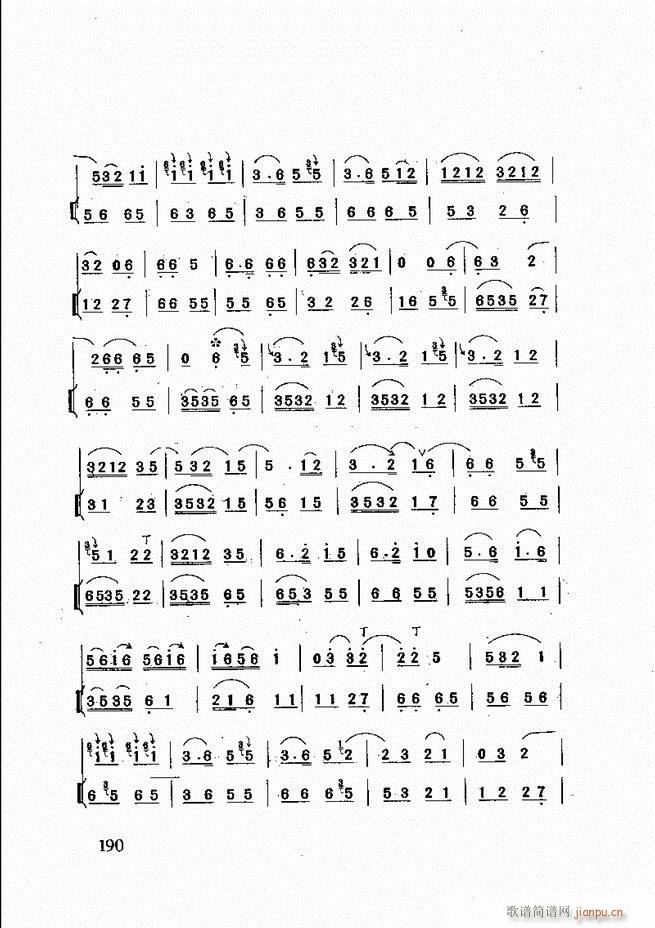 5 3 2 1 i | i i i i | 3 . 6 5 5 | 3 . 6 5 1 2 | 1 2 1 2 3 2 1 2 |
5 6 6 5 | 6 3 6 5 | 3 6 5 5 | 6 6 6 5 | 5 3 2 6 |
3 2 0 6 | 6 6 5 | 6 . 6 6 6 | 6 3 2 3 2 1 | 0 0 6 | 6 3 2 |
1 2 2 7 | 6 6 5 5 | 5 5 6 5 | 3 2 2 6 | 1 6 5 5 | 6 5 3 5 2 7 |
2 6 6 6 5 | 0 6 5 | 3 . 2 1 5 | 3 . 2 1 5 | 3 . 2 1 2 |
6 6 5 5 | 3 5 3 5 6 5 | 3 5 3 2 1 2 | 3 5 3 2 1 2 | 3 5 3 2 1 2 |
3 2 1 2 3 5 | 5 3 2 1 5 | 5 . 1 2 | 3 . 2 1 6 | 6 6 5 5 |
3 1 2 3 | 3 5 3 2 1 5 | 5 6 1 5 | 3 5 3 2 1 7 | 6 6 5 5 |
5 1 2 2 | 3 2 1 2 3 5 | 6 . 2 i 5 | 6 . 2 i 0 | 5 . 6 i . 6 |
6 5 3 5 2 2 | 3 5 3 5 6 5 | 6 5 3 5 5 | 6 6 5 5 | 5 3 5 6 1 1 |
5 6 i 6 5 6 i 6 | i 6 5 6 i | 0 3 3 2 | 2 2 5 | 5 3 2 1 |
3 5 3 5 6 1 | 2 1 6 1 1 | 1 1 2 7 | 6 6 6 5 | 5 6 5 6 |
i i i i | 3 . 6 5 5 | 3 . 6 5 2 | 2 3 2 1 | 0 3 2 |
6 5 6 5 | 3 6 5 5 | 6 6 6 5 | 5 3 2 1 | 1 2 2 7 |
190
歌谱简谱网 jianpu.cn